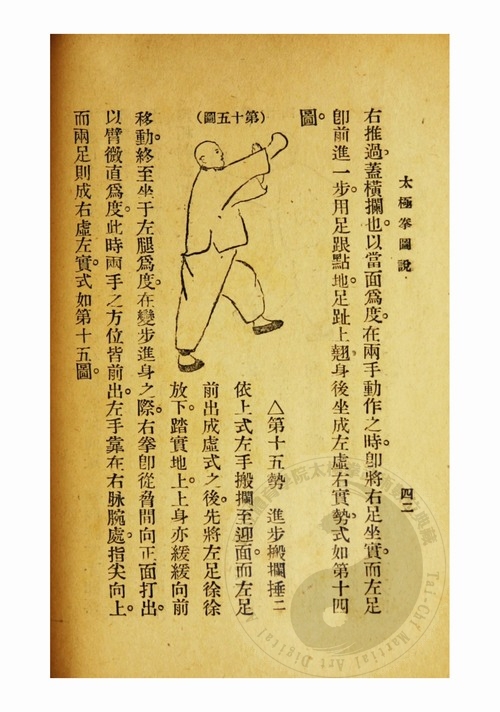 太極拳圖說
四二
右推過。蓋橫攔也。以當面爲度。在兩手動作之時。卽將右足坐實。而左足
卽前進一步。用足跟點地。足趾上翹。身後坐成左虛右實勢。式如第十四
圖。
(第十五圖)
△第十五勢 進步搬攔捶二
依上式左手搬攔至迎面。而左足
前出成虛式之後。先將左足徐徐
放下。踏實地上。上身亦緩緩向前
移動。終至坐于左腿爲度。在變步進身之際。右拳卽從脅間向正面打出。
以臂微直爲度。此時兩手之方位皆前出。左手靠在右脉腕處。指尖向上。
而兩足則成右虛左實。式如第十五圖。
Tai-Chi Martial Art Digital